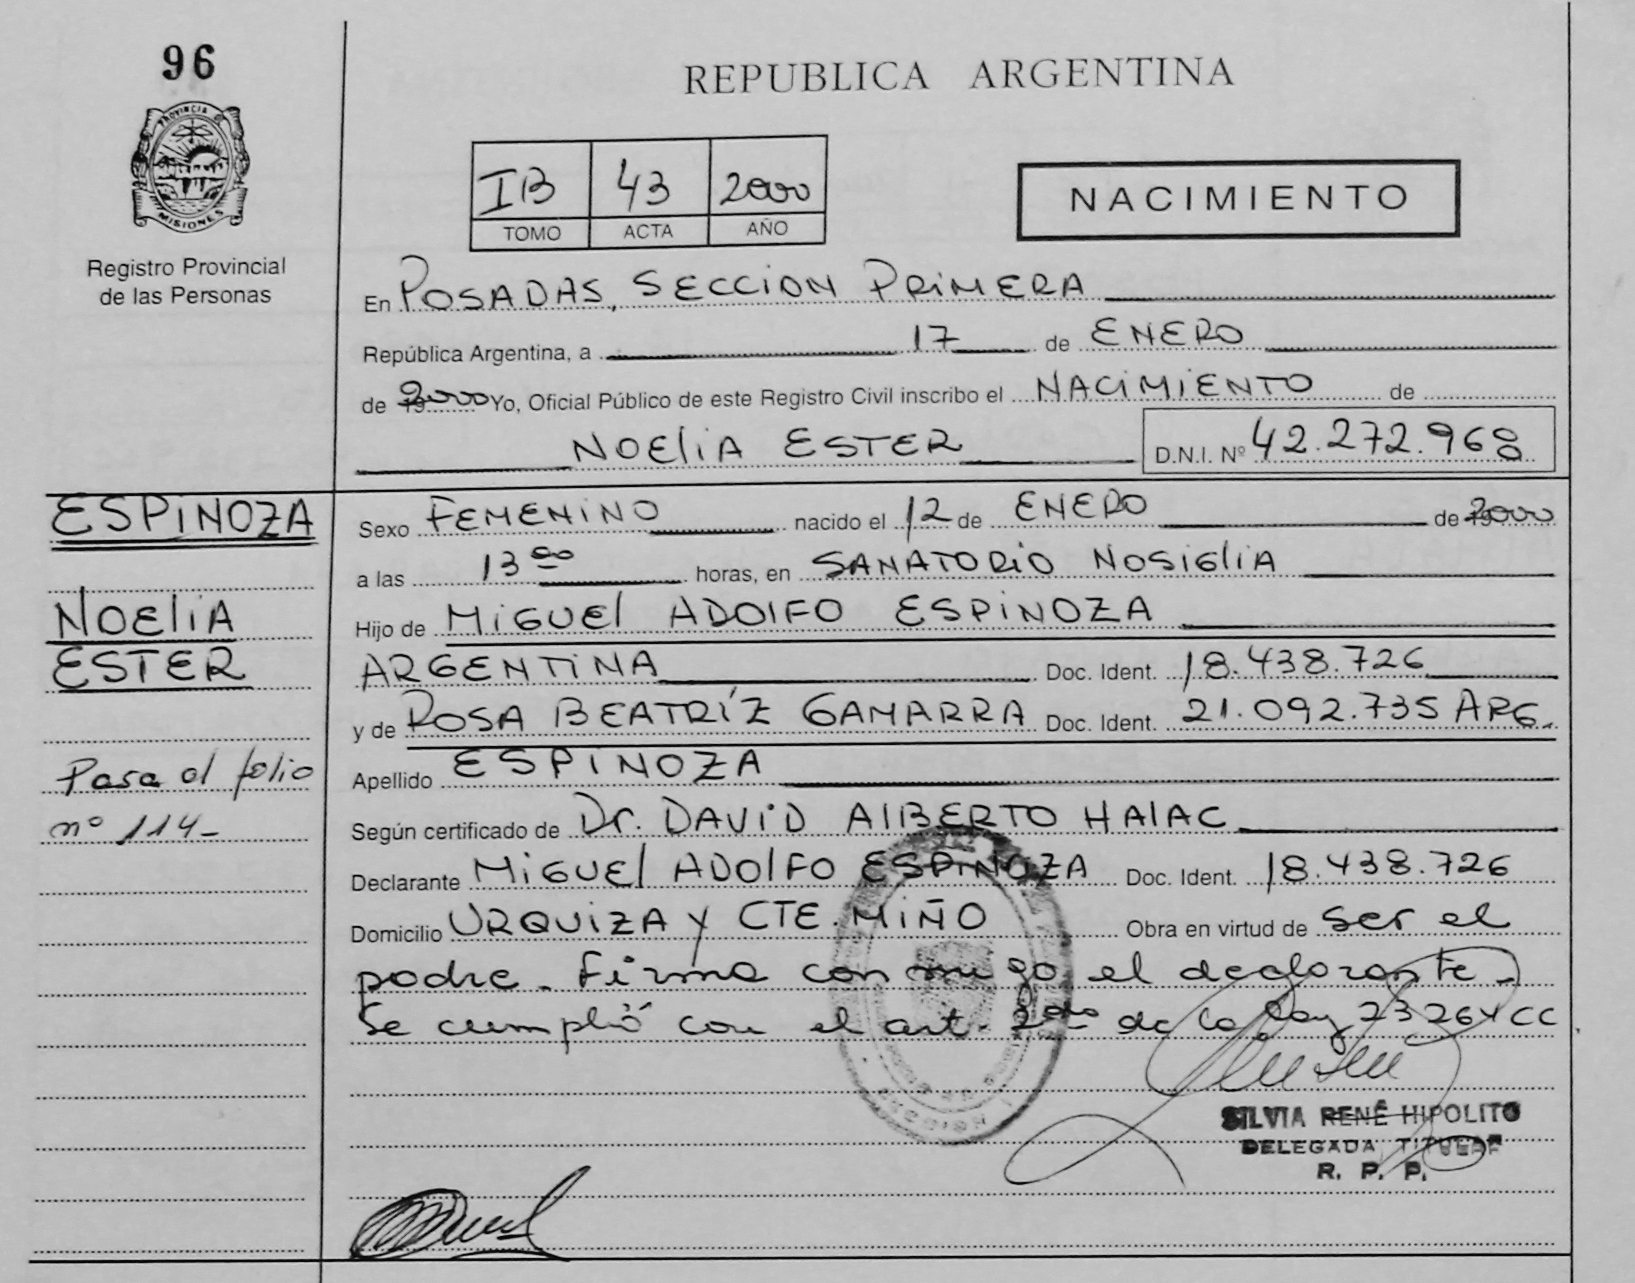 96
PROVINCIA D
MISIONES
Registro Provincial
de las Personas
REPUBLICA ARGENTINA
IB 43 2000
TOMO ACTA AÑO
NACIMIENTO
En POSADAS, SECCION PRIMERA
República Argentina, a 17 de ENERO
de 2000 Yo, Oficial Público de este Registro Civil inscribo el NACIMIENTO de
NOELIA ESTER D.N.I. Nº 42.272.968
ESPINOZA
Sexo FEMENINO nacido el 12 de ENERO de 2000
a las 13 00 horas, en SANATORIO NOSIGLIA
NOELIA
Hijo de MIGUEL ADOLFO ESPINOZA
ESTER
ARGENTINA Doc. Ident. 18.438.726
y de ROSA BEATRÍZ GAMARRA Doc. Ident. 21.092.735 ARG.
Pasa al folio
nº 114-
Apellido ESPINOZA
Según certificado de Dr. DAVID ALBERTO HALAC
Declarante MIGUEL ADOLFO ESPINOZA Doc. Ident. 18.438.726
Domicilio URQUIZA Y CTE. MIÑO Obra en virtud de ser el
padre. Firma con migo el declarante.
Se cumplió con el art. 2do de la Ley 23264 CC
SILVIA RENÊ HIPOLITO
DELEGADA TITULAR
R. P. P.